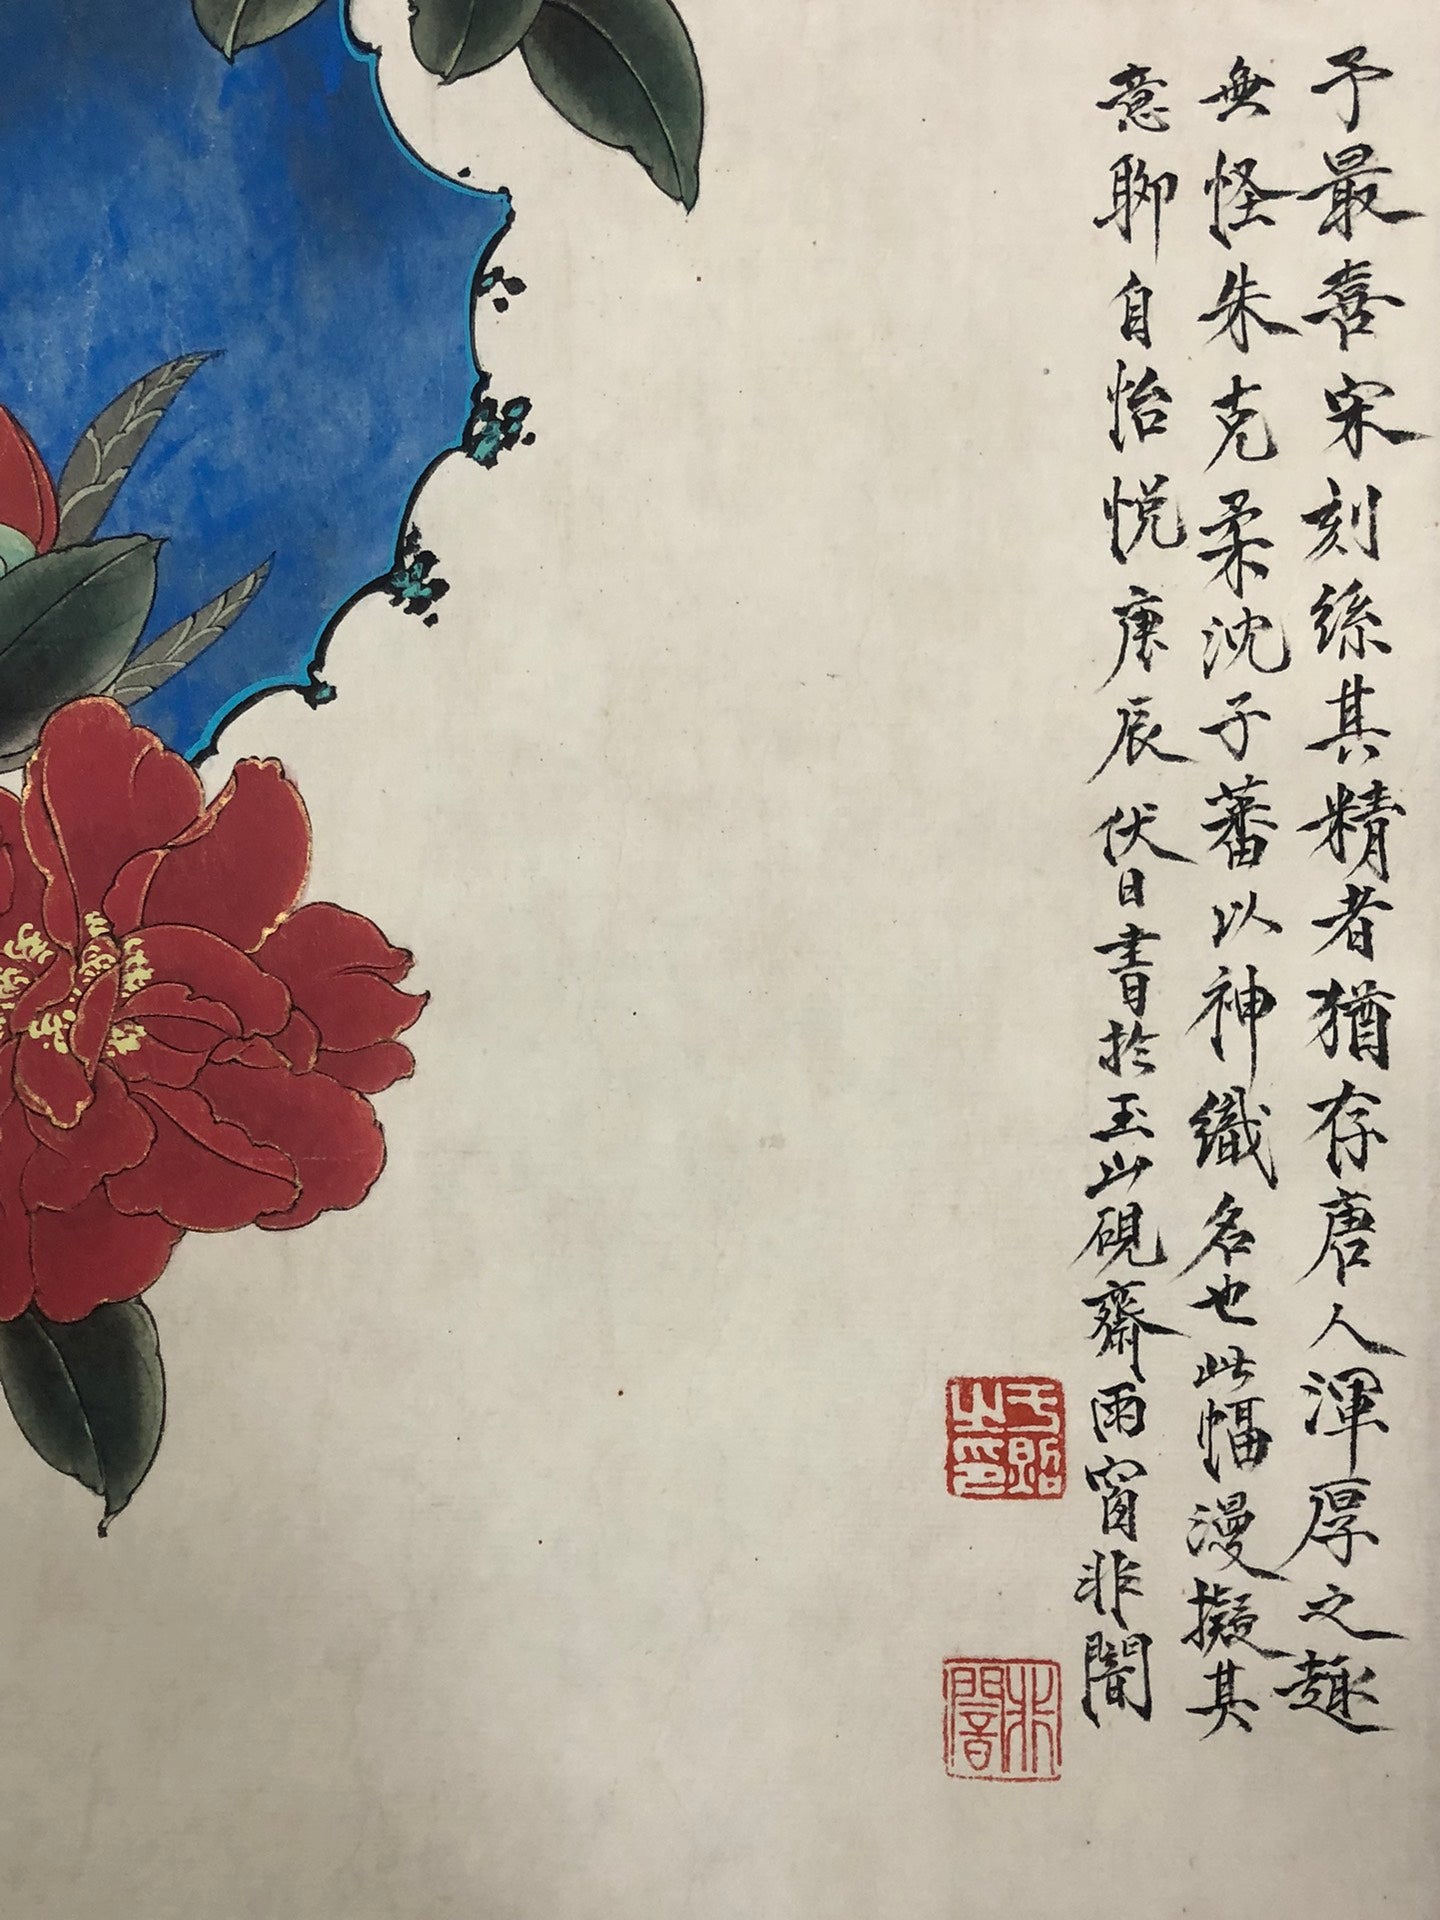 予最喜宋刻絲其精者猶存唐人渾厚之趣
無怪朱克柔沈子蕃以神織名也此幅漫擬其
意聊自怡悅庚辰伏日書於玉山硯齋雨窗非闇
于照之印
非闇